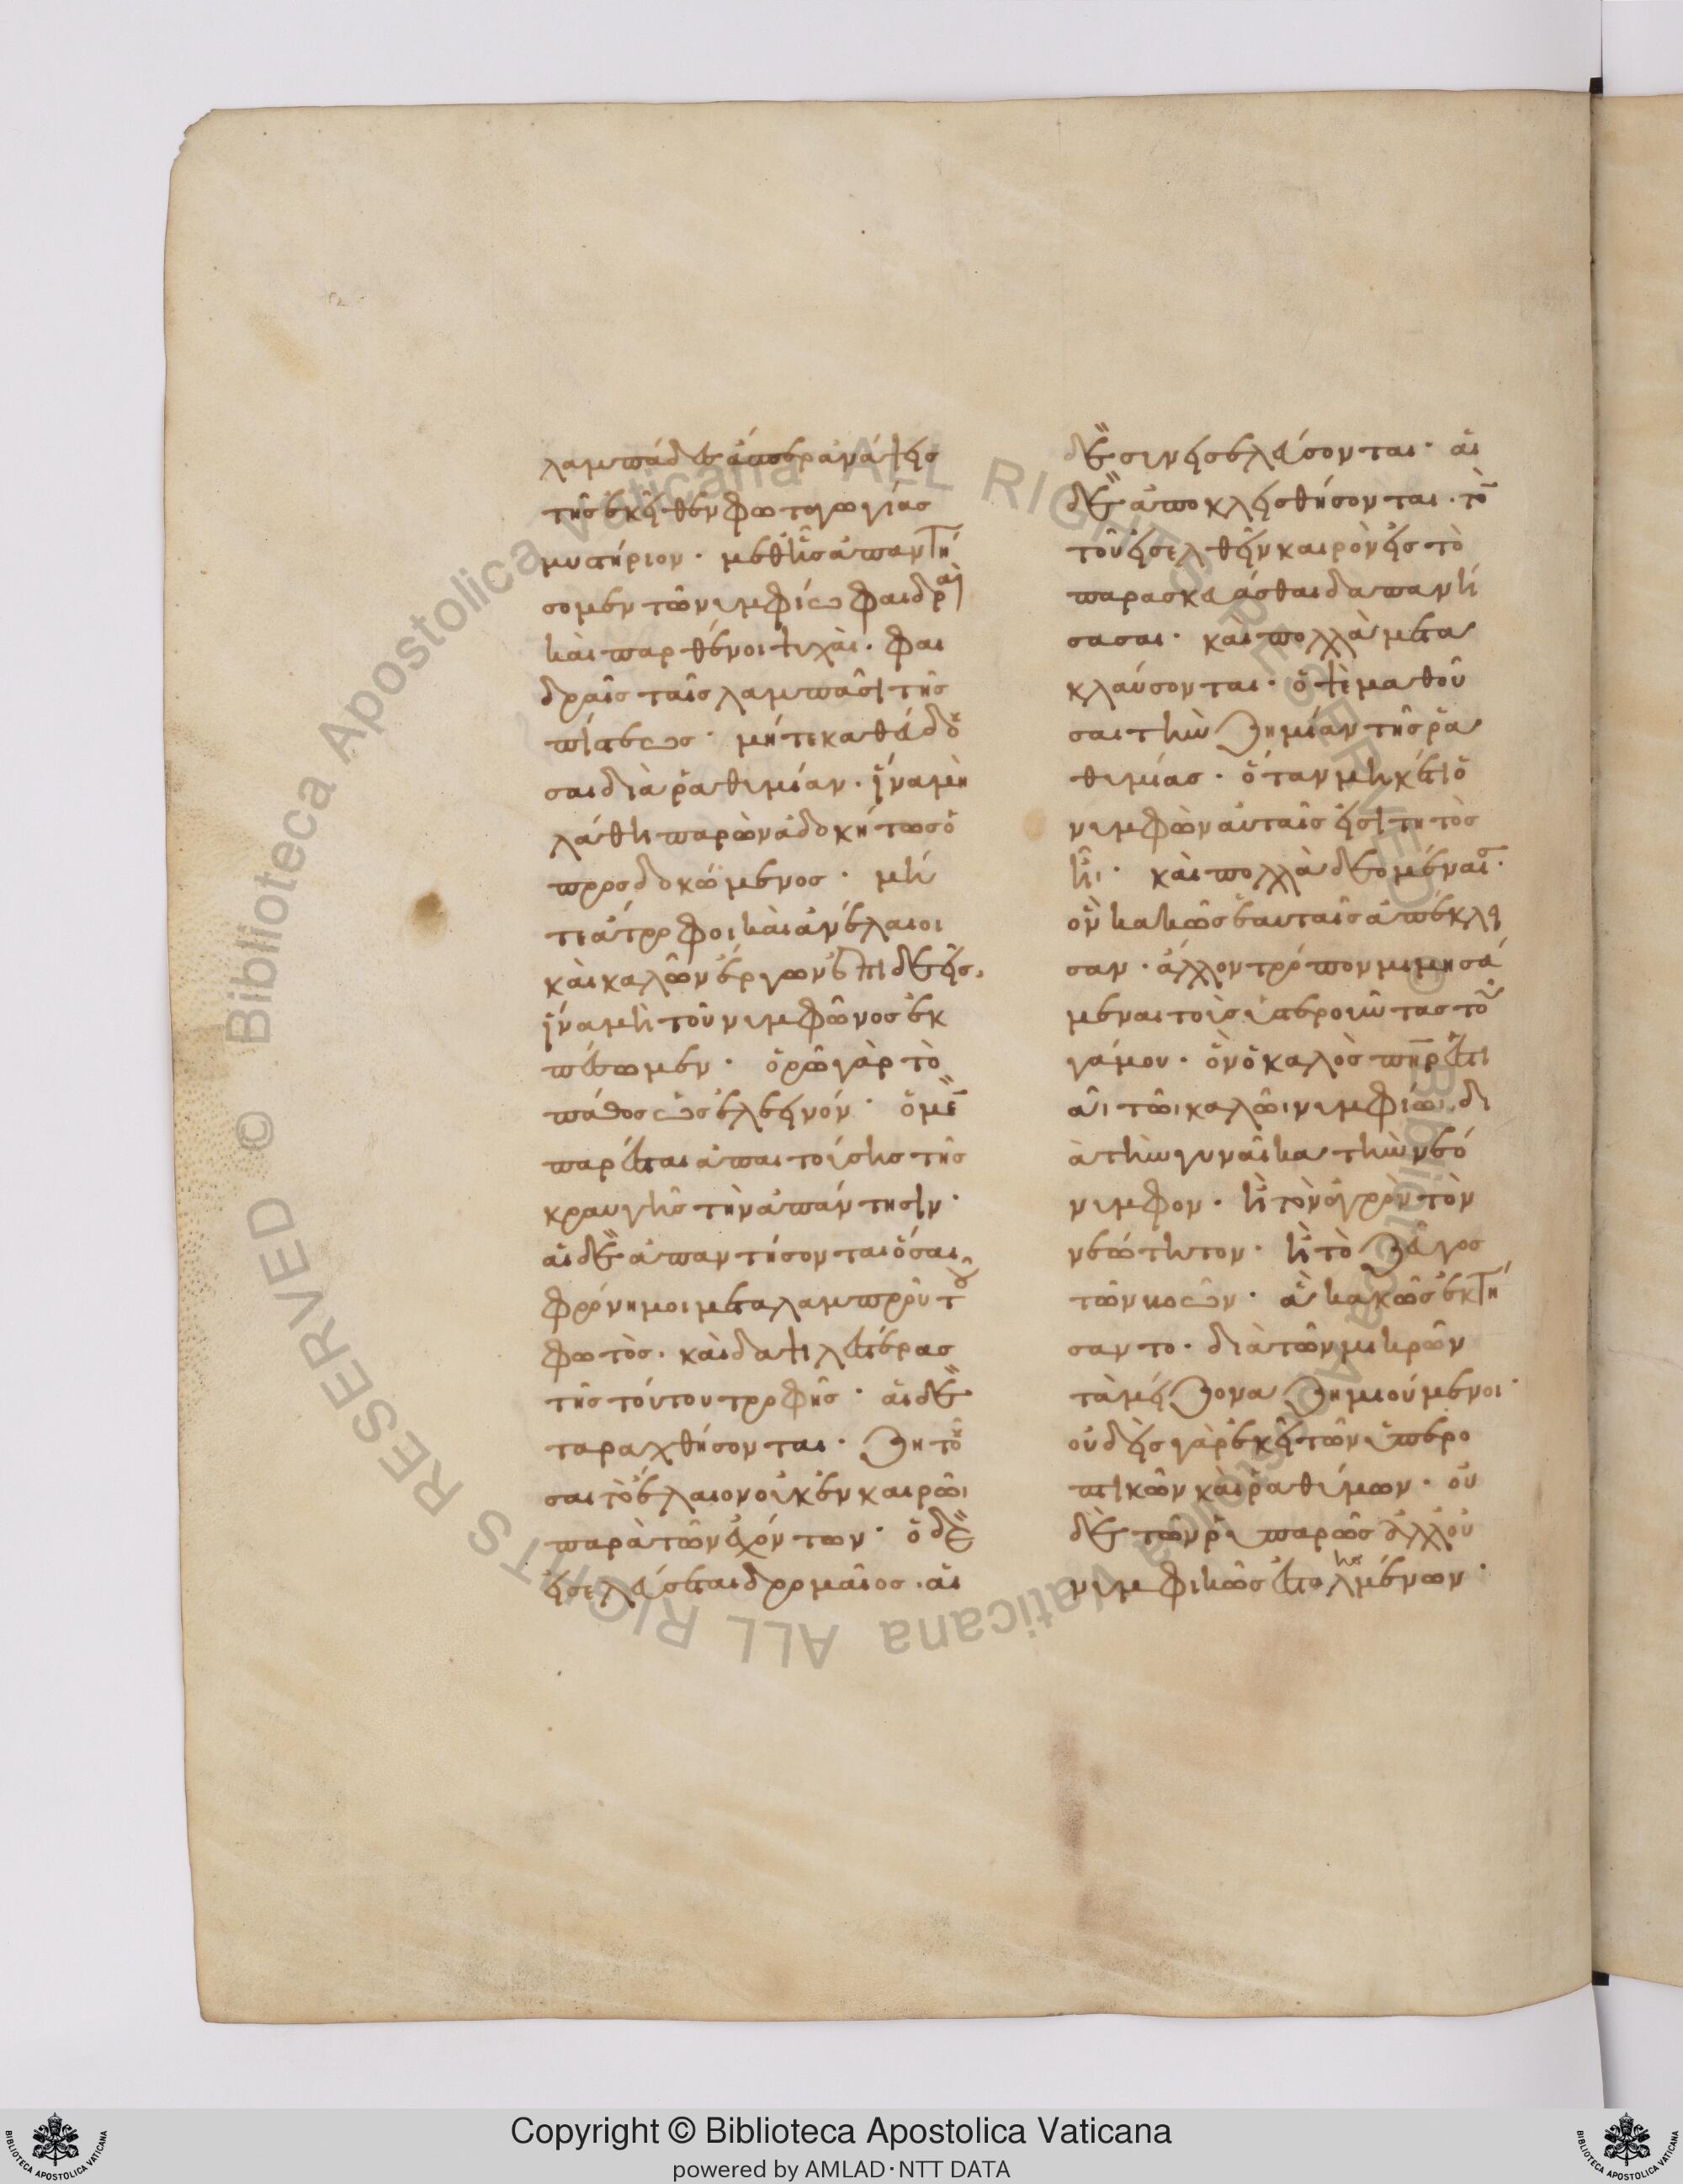 λαμπάδες ἅσπερ ἀνάψεις
τῆς ἐκεῖθεν φωταγωγίας
μυστήριον· μεθ' ἧς ἀπαντή
σομεν τῶ νυμφίω φαιδραὶ
καὶ παρθένοι ψυχαὶ· φαι
δραῖς ταῖς λαμπάσι τῆς
πίστεως· μήτε καθεύδου
σαι διὰ ῥαθυμίαν· ἵνα μὴ
λάθη παρὼν ἀδοκήτως ὁ
προσδοκώμενος· μή
τε ἄτροφοι καὶ ἀνέλαιοι
καὶ καλῶν ἔργων ἐπιδεεῖς·
ἵνα μὴ τοῦ νυμφῶνος ἐκ
πέσωμεν· ὁρῶ γὰρ τὸ
πάθος ὡς ἐλεεινόν· ὁ μὲν
παρέσται ἀπαιτούσης τῆς
κραυγῆς τὴν ἀπάντησιν·
αἱ δὲ ἀπαντήσονται ὅσαι
φρόνημοι μετὰ λαμπροῦ τοῦ
φωτὸς· καὶ δαψιλεστέρας
τῆς τούτου τροφῆς· αἱ δὲ
ταραχθήσονται· ζητοῦ
σαι τὸ ἔλαιον οὐκ ἐν καιρῶι
παρὰ τῶν ἐχόντων· ὁ δὲ
εἰσελεύσεται δρομαῖος· αἱ
δὲ συνεισελεύσονται· αἱ
δὲ ἀποκλεισθήσονται· τὸν
τοῦ εἰσελθεῖν καιρὸν εἰς τὸ
παρασκευάσθαι δαπανή
σασαι· καὶ πολλὰ μετα
κλαύσονται· ὀψὲ μαθοῦ
σαι τὴν ζημίαν τῆς ῥα
θυμίας· ὅταν μηκέτι ὁ
νυμφὼν αὐταῖς εἰσιτητὸς
ἦι· καὶ πολλὰ δεομέναις·
ὃν κακῶς ἑαυταῖς ἀπέκλει
σαν· ἄλλον τρόπον μιμησά
μεναι τοὺς ὑστεροιῶντας τοῦ
γάμου· ὃν ὁ καλὸς πὴρ ἑστι
ᾶι τῶι καλῶι νυμφίωι, δι
ὰ τὴν γυναῖκα τὴν νεό
νυμφον· ἢ τὸν ἀγρὸν τὸν
νεώνητον· ἢ τὸ ζεῦγος
τῶν βοῶν· ἃ κακῶς ἐκτή
σαντο· διὰ τῶν μικρῶν
τὰ μείζονα ζημιούμενοι·
οὐδεὶς γὰρ ἐκεῖ τῶν ὑπερο
πτικῶν καὶ ῥαθύμων· οὐ
δὲ τῶν ῥυπαρῶς ἀλλ' οὐ
νυμφικῶς ἐσταλμένων·